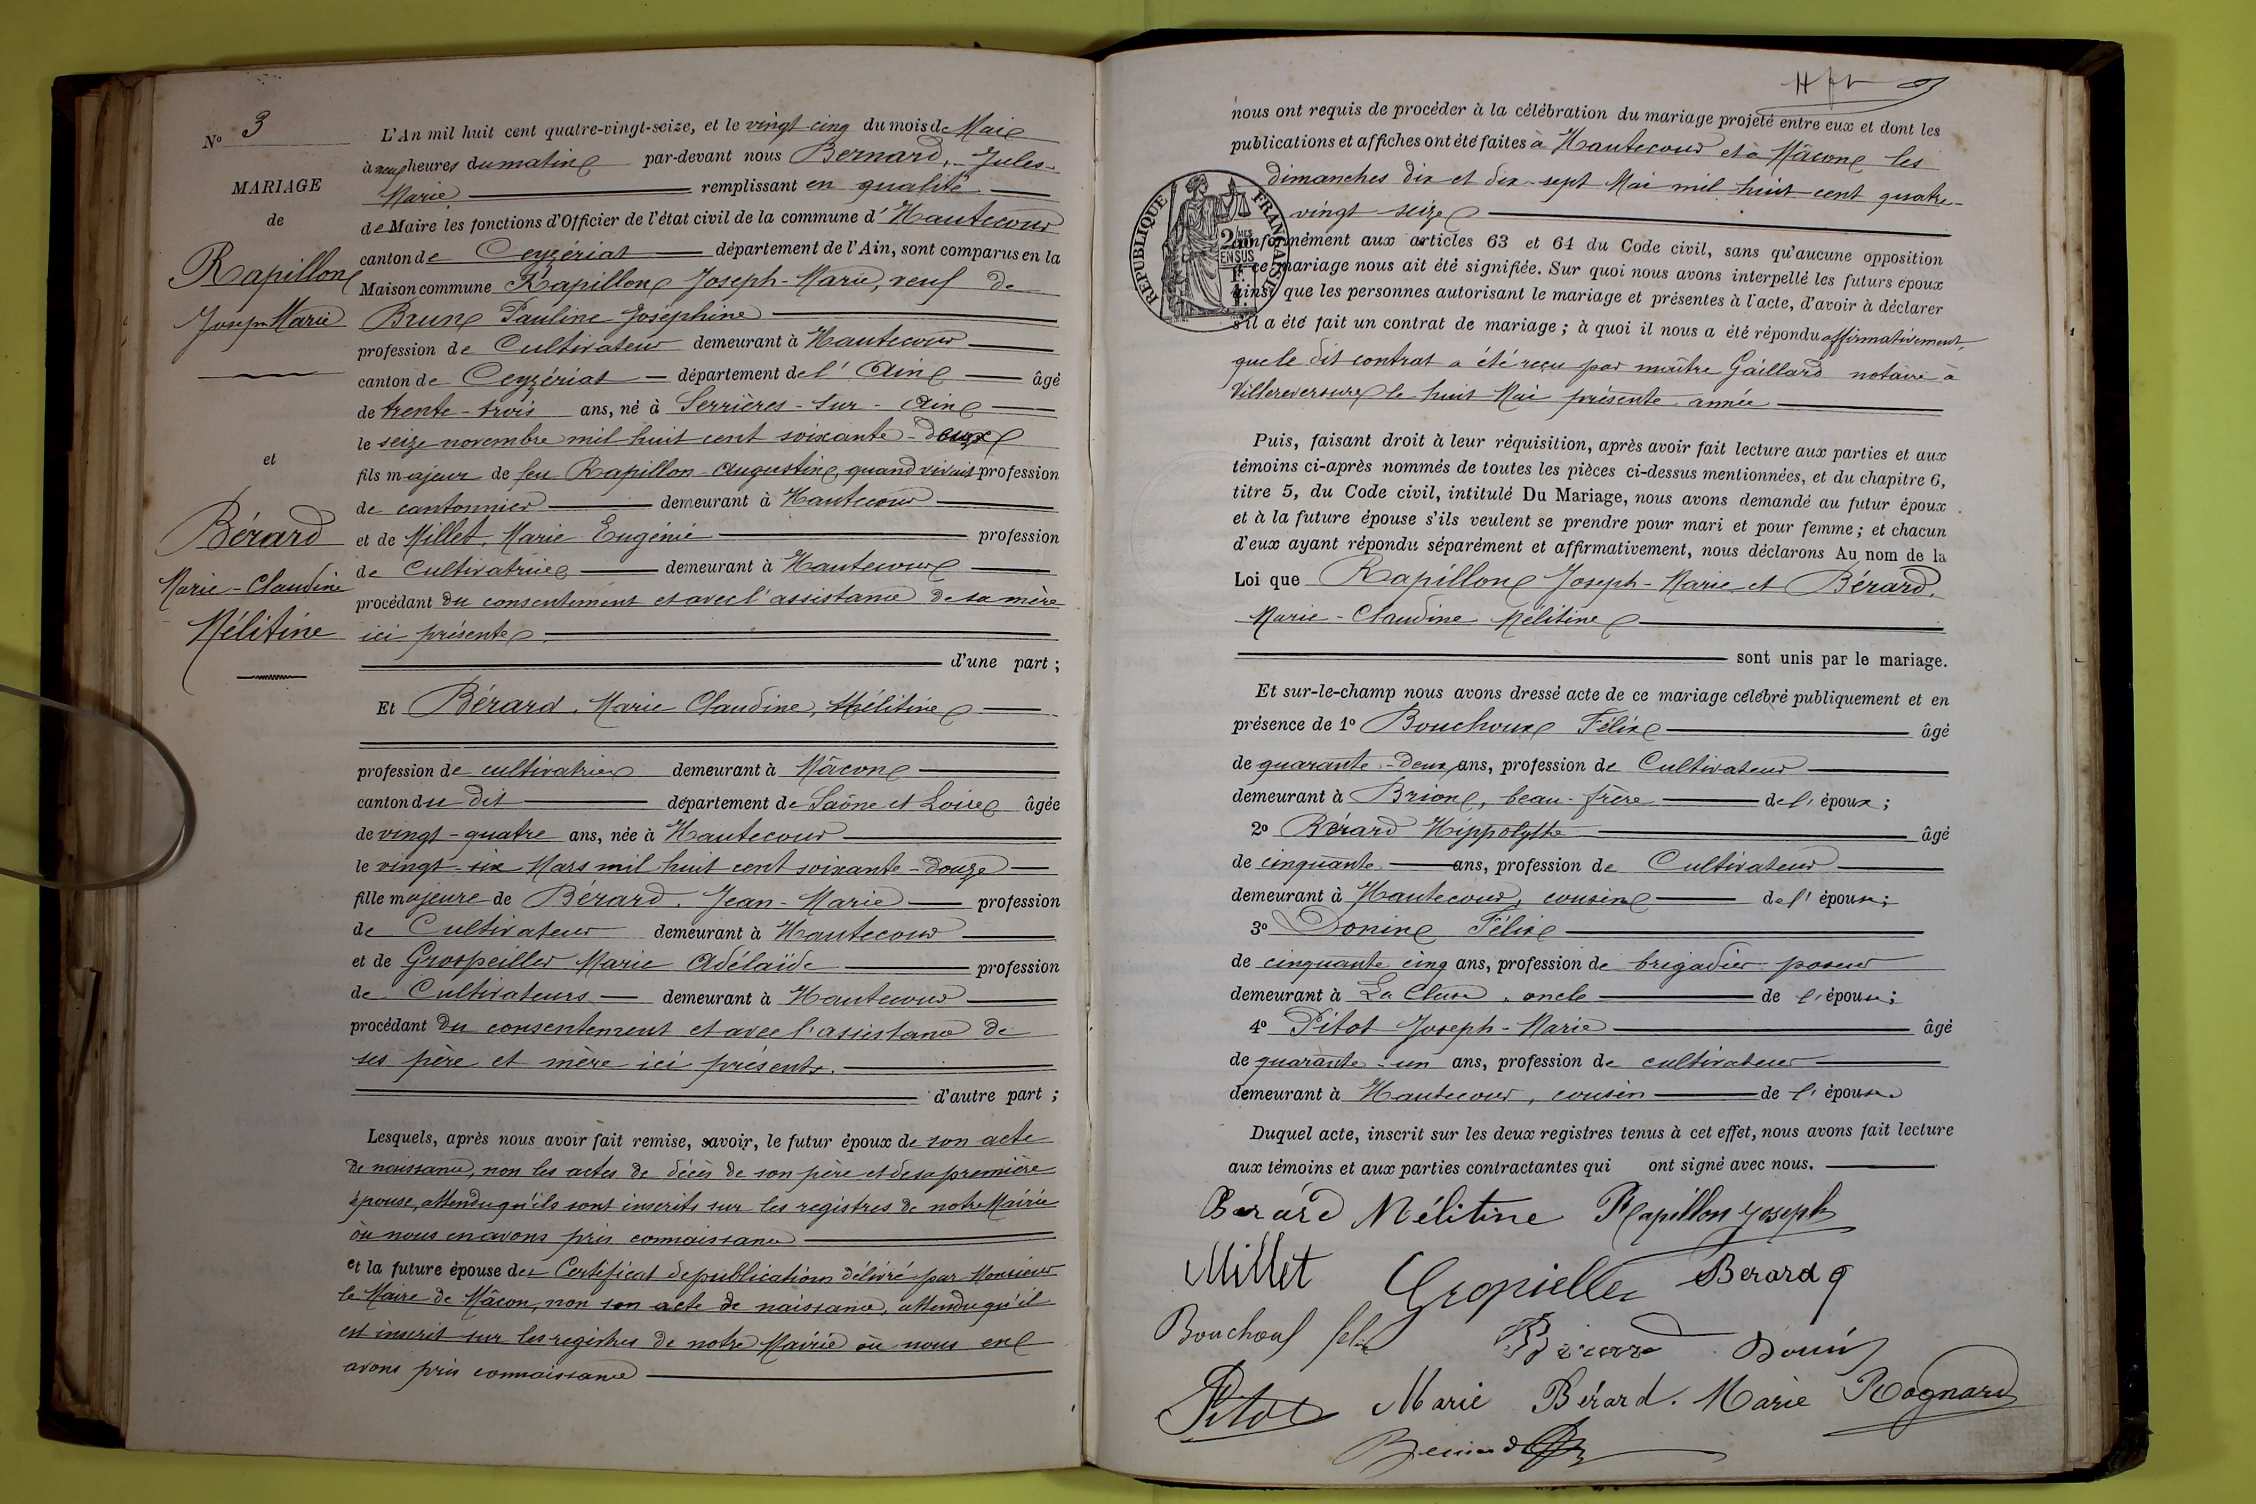 Nº 3
MARIAGE
de
Rapillon
Joseph Marie
et
Bérard
Marie-Claudine
Mélitine
L'An mil huit cent quatre-vingt-seize, et le vingt-cinq du mois de Mai
à neuf heures du matin par-devant nous Bernard, Jules-
Marie remplissant en qualité
de Maire les fonctions d'Officier de l'état civil de la commune d'Hautecour
canton de Ceyzériat département de l'Ain, sont comparus en la
Maison commune Rapillon Joseph-Marie, veuf de
Brun Pauline Joséphine
profession de Cultivateur demeurant à Hautecour
canton de Ceyzériat département de l'Ain âgé
de trente-trois ans, né à Serrières-sur-Ain
le seize novembre mil huit cent soixante-deux
fils majeur de feu Rapillon Augustin, quand vivait profession
de cantonnier demeurant à Hautecour
et de Millet, Marie Eugénie profession
de Cultivatrice demeurant à Hautecour
procédant du consentement et avec l'assistance de sa mère
ici présente
d'une part ;
Et Bérard, Marie Claudine, Mélitine
profession de cultivatrice demeurant à Mâcon
canton du dit département de Saône et Loire âgée
de vingt-quatre ans, née à Hautecour
le vingt-six Mars mil huit cent soixante-douze
fille majeure de Bérard, Jean-Marie profession
de Cultivateur demeurant à Hautecour
et de Grospeiller Marie Adélaïde profession
de Cultivateurs demeurant à Hautecour
procédant du consentement et avec l'assistance de
ses père et mère ici présents.
d'autre part ;
Lesquels, après nous avoir fait remise, savoir, le futur époux de son acte
de naissance, non les actes de décès de son père et de sa première
épouse, attendu qu'ils sont inscrits sur les registres de notre Mairie
où nous en avons pris connaissance
et la future épouse des Certificat de publication délivré par Monsieur
le Maire de Mâcon, non son acte de naissance, attendu qu'il
est inscrit sur les registres de notre Mairie où nous en
avons pris connaissance
nous ont requis de procéder à la célébration du mariage projeté entre eux et dont les
publications et affiches ont été faites à Hautecour et à Mâcon les
dimanches dix et dix-sept Mai mil huit cent quatre-
vingt seize
conformément aux articles 63 et 64 du Code civil, sans qu'aucune opposition
à ce mariage nous ait été signifiée. Sur quoi nous avons interpellé les futurs époux
ainsi que les personnes autorisant le mariage et présentes à l'acte, d'avoir à déclarer
s'il a été fait un contrat de mariage ; à quoi il nous a été répondu affirmativement,
que le dit contrat a été reçu par maître Gaillard notaire à
Villereversure le huit Mai présente année
RÉPUBLIQUE FRANÇAISE
2/MES
EN SUS
Puis, faisant droit à leur réquisition, après avoir fait lecture aux parties et aux
témoins ci-après nommés de toutes les pièces ci-dessus mentionnées, et du chapitre 6,
titre 5, du Code civil, intitulé Du Mariage, nous avons demandé au futur époux
et à la future épouse s'ils veulent se prendre pour mari et pour femme ; et chacun
d'eux ayant répondu séparément et affirmativement, nous déclarons Au nom de la
Loi que Rapillon Joseph-Marie et Bérard,
Marie-Claudine Mélitine
sont unis par le mariage.
Et sur-le-champ nous avons dressé acte de ce mariage célébré publiquement et en
présence de 1º Bouchoux Félix âgé
de quarante-deux ans, profession de Cultivateur
demeurant à Brion, beau-frère de l'époux ;
2º Bérard Hippolythe âgé
de cinquante ans, profession de Cultivateur
demeurant à Hautecour, cousin de l'épouse ;
3º Donin Félix
de cinquante cinq ans, profession de brigadier poseur
demeurant à La Cluse, oncle de l'épouse ;
4º Pitot Joseph-Marie âgé
de quarante-un ans, profession de cultivateur
demeurant à Hautecour, cousin de l'épouse
Duquel acte, inscrit sur les deux registres tenus à cet effet, nous avons fait lecture
aux témoins et aux parties contractantes qui ont signé avec nous.
Berard Mélitine Rapillon Joseph
Millet Gropieller Berard
Bouchoux félix Bérard Donin
Pitot Marie Bérard. Marie Rognard
Bernard